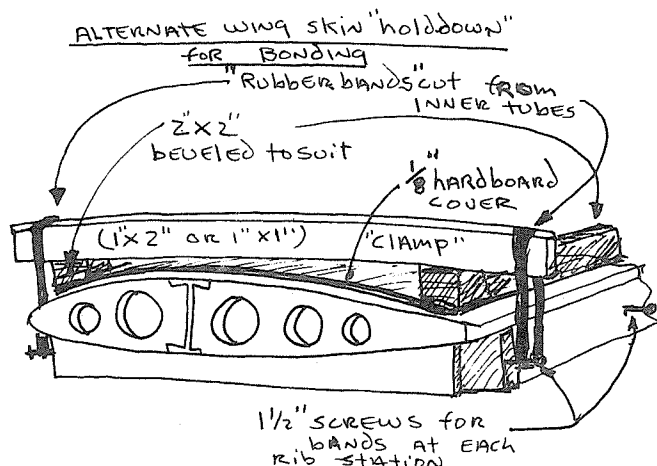 ALTERNATE WING SKIN "holddown"
for BONDING
"RUBBER bands" cut from
INNER TUBES
2"X2"
beveled to suit
1/8" hardboard
cover
(1"X2" OR 1"X1")  "clamp"
1 1/2" screws for
bands at each
Rib station